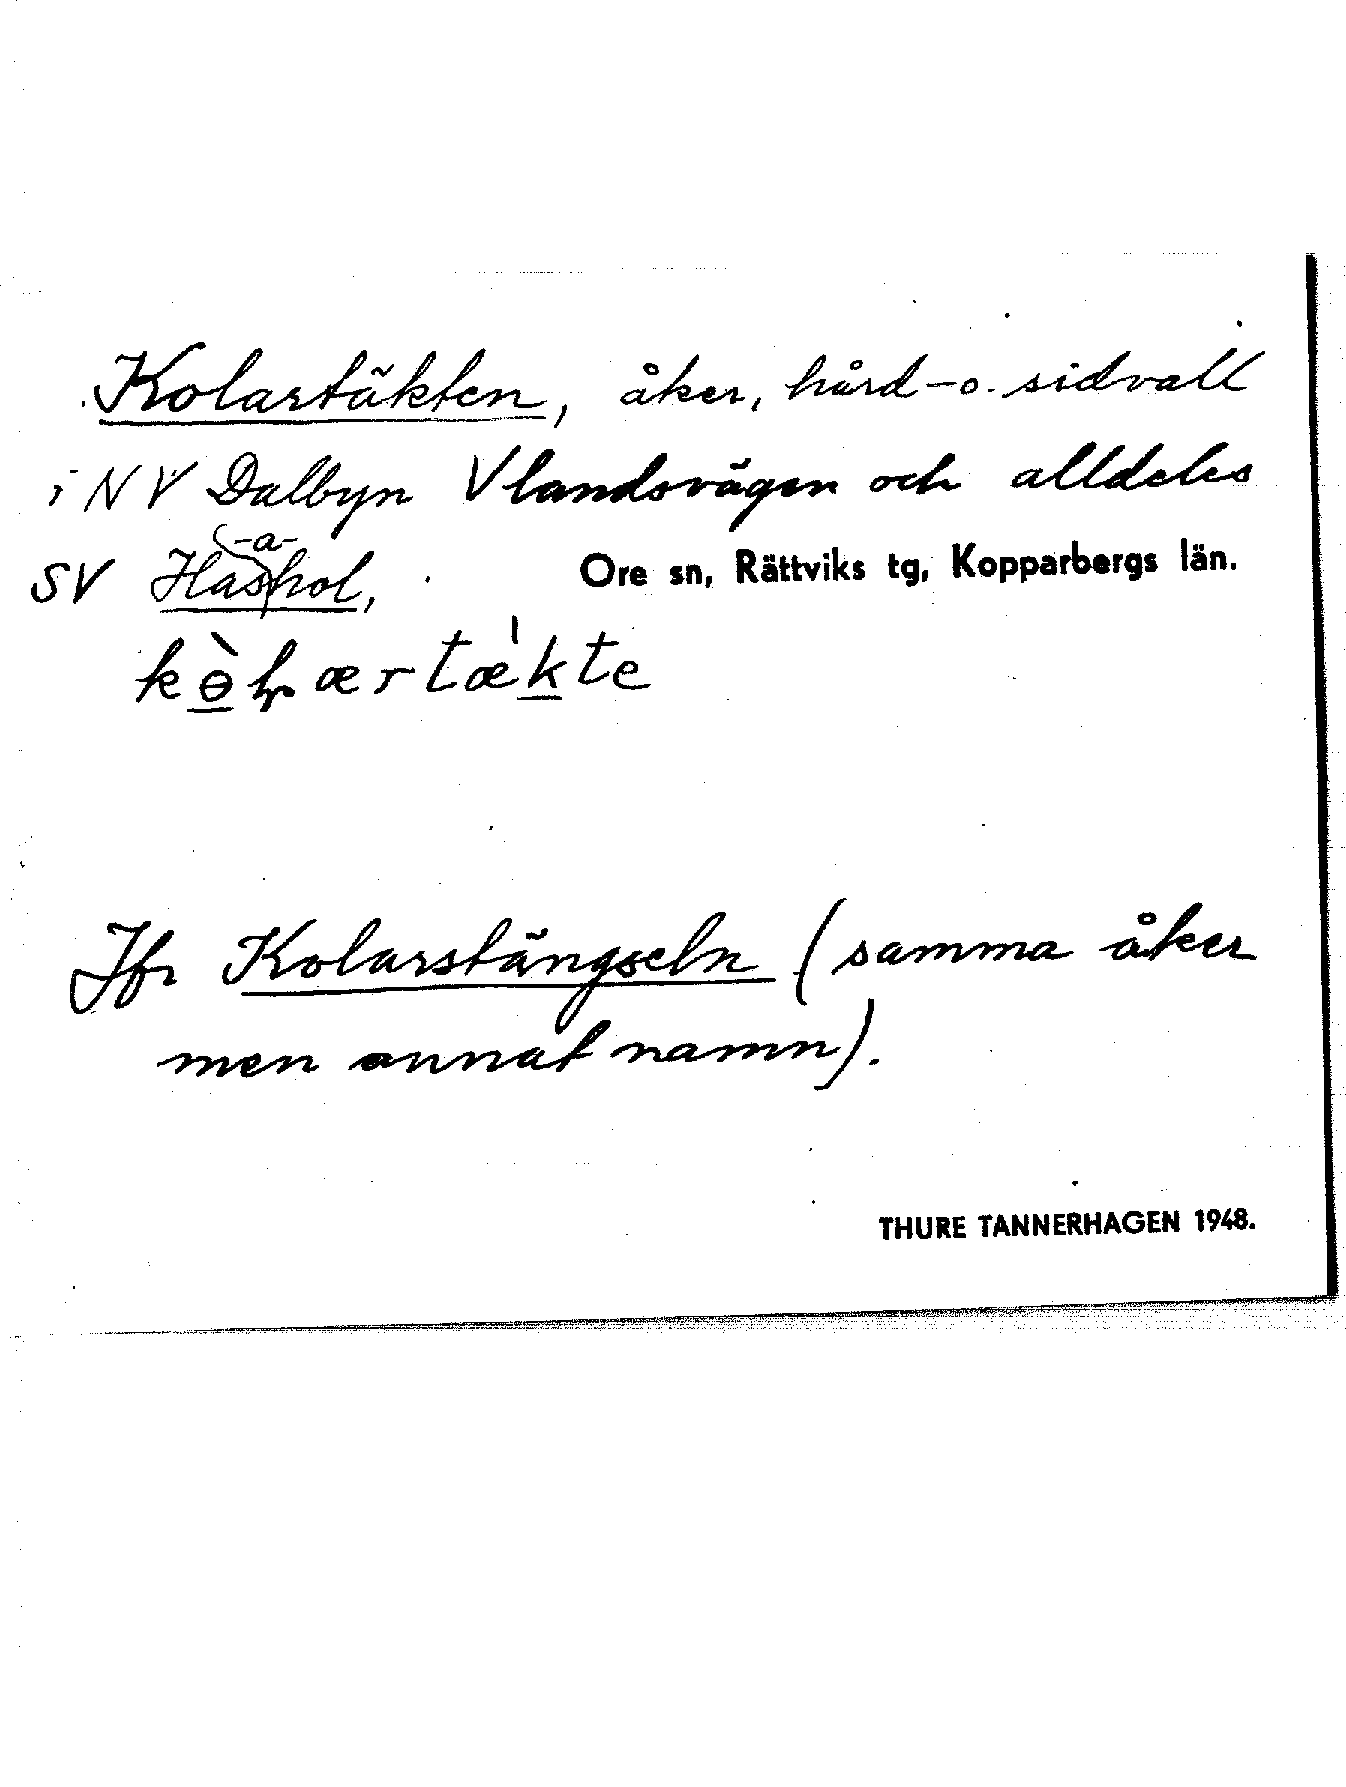 Kolartäkten, åker, hård- o. sidvall
i NV Dalbyn V landsvägen och alldeles
-a-
SV Hashol,
Ore sn, Rättviks tg, Kopparbergs län.
Jfr Kolarstängseln (samma åker
men annat namn).
THURE TANNERHAGEN 1948.